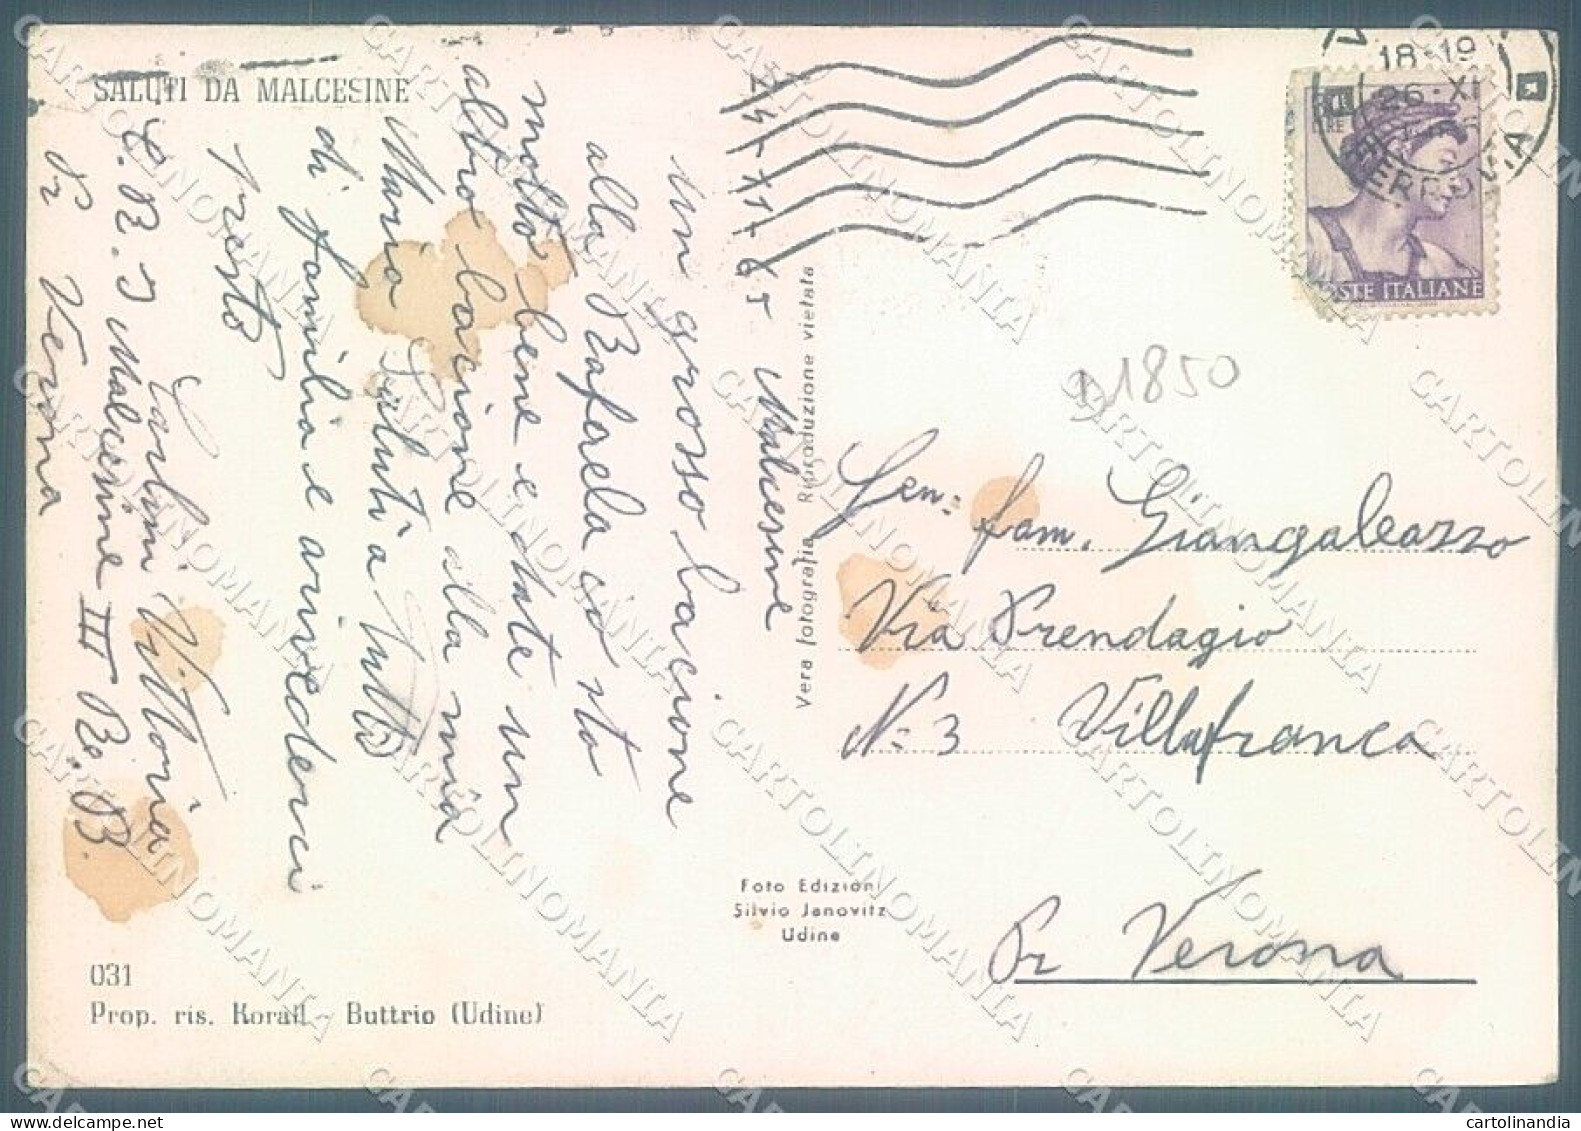 SALUTI DA MALCESINE
24-11-65 Malcesine
Un grosso bacione
alla Rafaela io sto
molto bene e state un
altro bacione alla mia
Maria Saluti a tutti
di famiglia e arrivederci
presto
Carlini Vittoria
C. B. T Malcesine III Re. B.
Pr Verona
031
Prop. ris. Korail - Buttrio (Udine)
Vera fotografia Riproduzione vietata
Foto Edizioni
Silvio Janovitz
Udine
18-19
26·XI
FERROVIA
LIRE
POSTE ITALIANE
D1850
Gen: fam. Giangaleazzo
Via Prendagio
N: 3 Villafranca
Pr Verona
CARTOLINOMANIA
cartolinandia